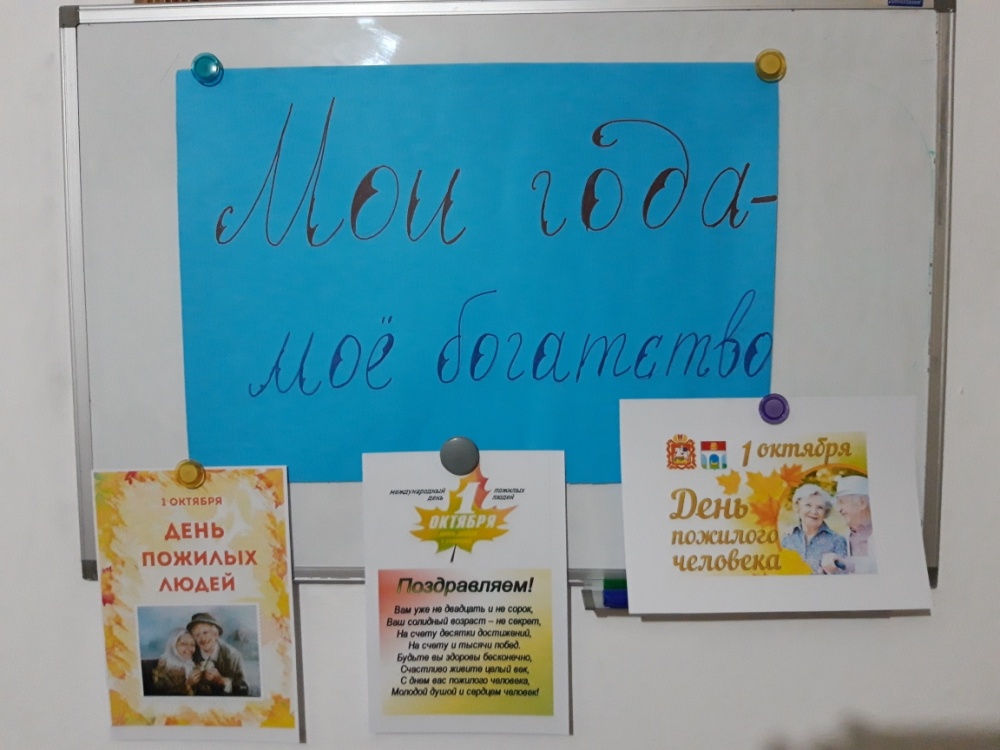 Мои года-
моё богатство
1 ОКТЯБРЯ
ДЕНЬ
ПОЖИЛЫХ
ЛЮДЕЙ
международный день
1
пожилых людей
ОКТЯБРЯ
Поздравляем!
Вам уже не двадцать и не сорок,
Ваш солидный возраст – не секрет,
На счету десятки достижений,
На счету и тысячи побед.
Будьте вы здоровы бесконечно,
Счастливо живите целый век,
С днем вас пожилого человека,
Молодой душой и сердцем человек!
1 октября
День
пожилого
человека